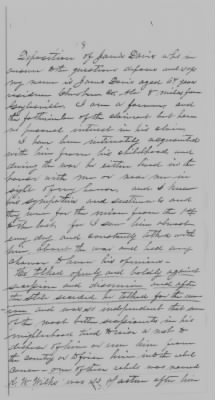 8
Deposition of James Davis who in
answer to the questions deposes and says
my name is James Davis aged 64 years
residence Cherokee Co Ala 8 miles from
Gaylesville. I am a farmer, and
the of the claimant but have
no personal interest in his claim
I have been intimately acquainted
with him from his childhood and
during the war he either lived in the
house with me or near me in
sight of my house, and I know
his sympathies and sentiments and
they were for the union from the 1st
to the last, for I saw him almost
every day and constantly talked with
him about the war and had every
chance to know his opinions.
He talked openly and boldly against
secession and disunion and after
the State seceded he talked for the un-
ion and was so independent that some
of the most bitter secessionists in his
neighborhood tried to raise a mob to
dispose of him or run him from
the county or drive him into the rebel
one of them rebels was named
R. W. Wilks was after him